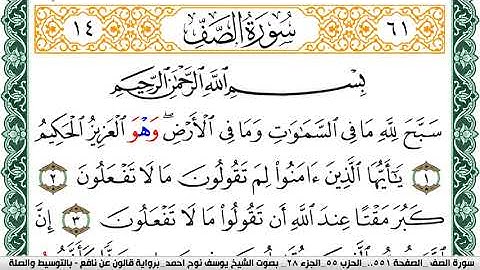 ٦١ سُورَةُ الصَّفِّ ١٤
بِسْمِ اللَّهِ الرَّحْمَٰنِ الرَّحِيمِ
سَبَّحَ لِلَّهِ مَا فِي السَّمَاوَاتِ وَمَا فِي الْأَرْضِ ۖ وَهْوَ الْعَزِيزُ الْحَكِيمُ
١ يَا أَيُّهَا الَّذِينَ ءَامَنُوا لِمَ تَقُولُونَ مَا لَا تَفْعَلُونَ ٢
كَبُرَ مَقْتًا عِندَ اللَّهِ أَن تَقُولُوا مَا لَا تَفْعَلُونَ ٣ إِنَّ
سورة الصف_ الصفحة ٥٥١_ الحزب ٥٥_الجزء ٢٨_ بصوت الشيخ يوسف نوح احمد_برواية قالون عن نافع - بالتوسيط والصلة